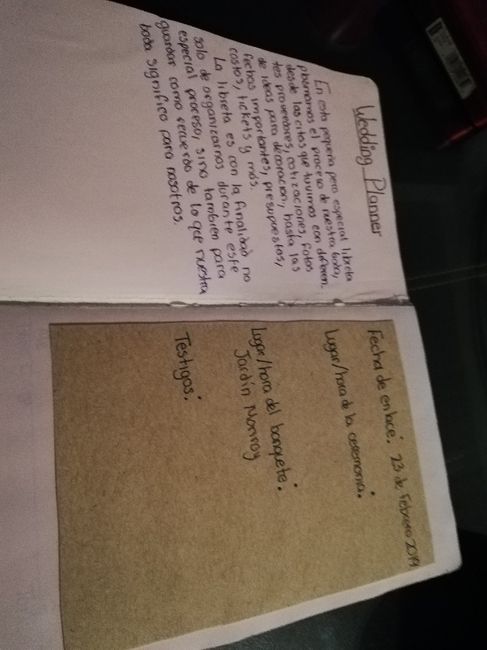 Wedding Planner
En esta pequeña pero especial libreta
plasmamos el proceso de nuestra boda,
desde las citas que tuvimos con diferen
tes proveedores, cotizaciones, fotos
de ideas para decoración, hasta las
fechas importantes, presupuestos,
costos, tickets y más.
La libreta es con la finalidad no
solo de organizarnos durante este
especial proceso, sino también para
guardar como recuerdo de lo que nuestra
boda significo para nosotros.
Fecha de enlace: 23 de Febrero 2019
Lugar/hora de la ceremonia:
Lugar/hora del banquete:
Jardín Monroy
Testigos: